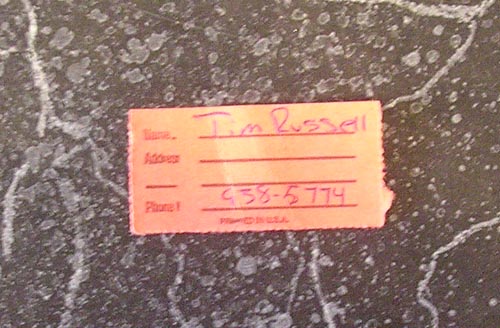 Name Tim Russell
Address
Phone # 938-5774
PRINTED IN U.S.A.